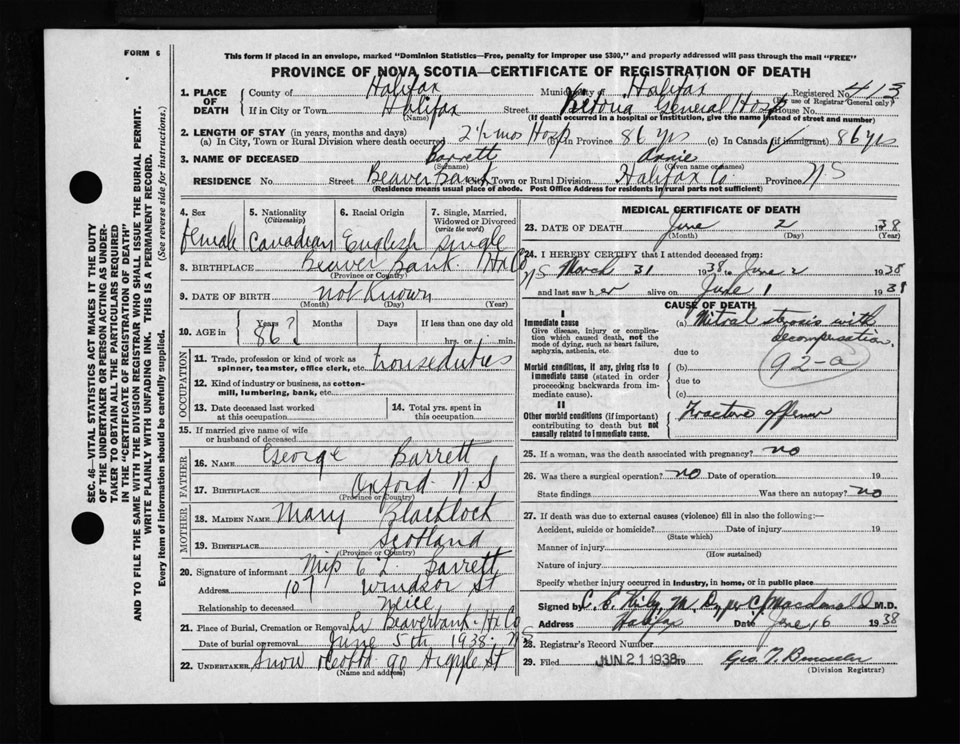 FORM 6
This form if placed in an envelope, marked "Dominion Statistics—Free, penalty for improper use $300," and properly addressed will pass through the mail "FREE"
PROVINCE OF NOVA SCOTIA—CERTIFICATE OF REGISTRATION OF DEATH
1. PLACE OF DEATH
County of Halifax Municipality of Halifax Registered No. 413
(use of Registrar General only)
If in City or Town Halifax Street Victoria General Hosp House No.
(Name) (If death occurred in hospital or institution, give the name instead of street and number)
2. LENGTH OF STAY (in years, months and days)
(a) In City, Town or Rural Division where death occurred 2½ mos Hosp (b) in Province 86 yrs (c) in Canada (if immigrant) 86 yrs
3. NAME OF DECEASED Barrett Annie
(Surname) (Given name or names)
RESIDENCE No. Street Beaver Bank City, Town or Rural Division Halifax Co. Province N S
(Residence means usual place of abode. Post Office Address for residents in rural parts not sufficient)
4. Sex
female
5. Nationality (Citizenship)
Canadian
6. Racial Origin
English
7. Single, Married, Widowed or Divorced (write the word)
single
8. BIRTHPLACE Beaver Bank. Hx Co N S
(Province or Country)
9. DATE OF BIRTH not Known
(Month) (Day) (Year)
10. AGE in Years Months Days If less than one day old
86 ? hrs. or min.
OCCUPATION
11. Trade, profession or kind of work as spinner, teamster, office clerk, etc. houseduties
12. Kind of industry or business, as cotton-mill, lumbering, bank, etc.
13. Date deceased last worked at this occupation
14. Total yrs. spent in this occupation
15. If married give name of wife or husband of deceased
FATHER
16. NAME George Barrett
17. BIRTHPLACE Oxford N S
(Province or Country)
MOTHER
18. MAIDEN NAME Mary Blacklock
19. BIRTHPLACE Scotland
(Province or Country)
20. Signature of informant Miss E L. Barrett
Address 107 Windsor St
Relationship to deceased neice
21. Place of Burial, Cremation or Removal Beaverbank. Hx Co
Date of burial or removal June 5th 1938. N S
22. UNDERTAKER Snow & Co Ltd 90 Argyle St
(Name and address)
MEDICAL CERTIFICATE OF DEATH
23. DATE OF DEATH June 2 1938
(Month) (Day) (Year)
24. I HEREBY CERTIFY that I attended deceased from:
March 31 1938 to June 2 1938
and last saw her alive on June 1 1938
CAUSE OF DEATH
I
Immediate cause
Give disease, injury or complication which caused death, not the mode of dying, such as heart failure, asphyxia, asthenia, etc.
(a) Mitral stenosis with decompensation.
due to
92-a
Morbid conditions, if any, giving rise to immediate cause (stated in order proceeding backwards from immediate cause).
(b)
due to
(c)
II
Other morbid conditions (if important) contributing to death but not causally related to immediate cause.
Fracture of femur
25. If a woman, was the death associated with pregnancy? no
26. Was there a surgical operation? no Date of operation 19
State findings Was there an autopsy? no
27. If death was due to external causes (violence) fill in also the following:—
Accident, suicide or homicide? Date of injury 19
(State which)
Manner of injury
(How sustained)
Nature of injury
Specify whether injury occurred in industry, in home, or in public place
Signed by M. D. per C Macdonald M.D.
Address Halifax Date June 16 1938
28. Registrar's Record Number
29. Filed JUN 21 1938 19
(Division Registrar)
SEC. 46—VITAL STATISTICS ACT MAKES IT THE DUTY
OF THE UNDERTAKER OR PERSON ACTING AS UNDER-
TAKER TO OBTAIN ALL THE PARTICULARS REQUIRED
IN THE "CERTIFICATE OF REGISTRATION OF DEATH"
AND TO FILE THE SAME WITH THE DIVISION REGISTRAR WHO SHALL ISSUE THE BURIAL PERMIT.
WRITE PLAINLY WITH UNFADING INK. THIS IS A PERMANENT RECORD.
Every item of information should be carefully supplied. (See reverse side for instructions.)